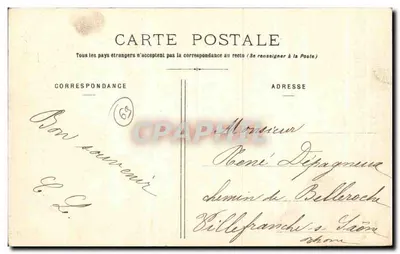 CARTE POSTALE
Tous les pays étrangers n'acceptent pas la correspondance au recto (Se renseigner à la Poste)
CORRESPONDANCE
ADRESSE
69
Bon souvenir
C L.
CPAPHIL
Monsieur
René Dépagneux
chemin de Belleroche
Villefranche s. Saône
Rhône